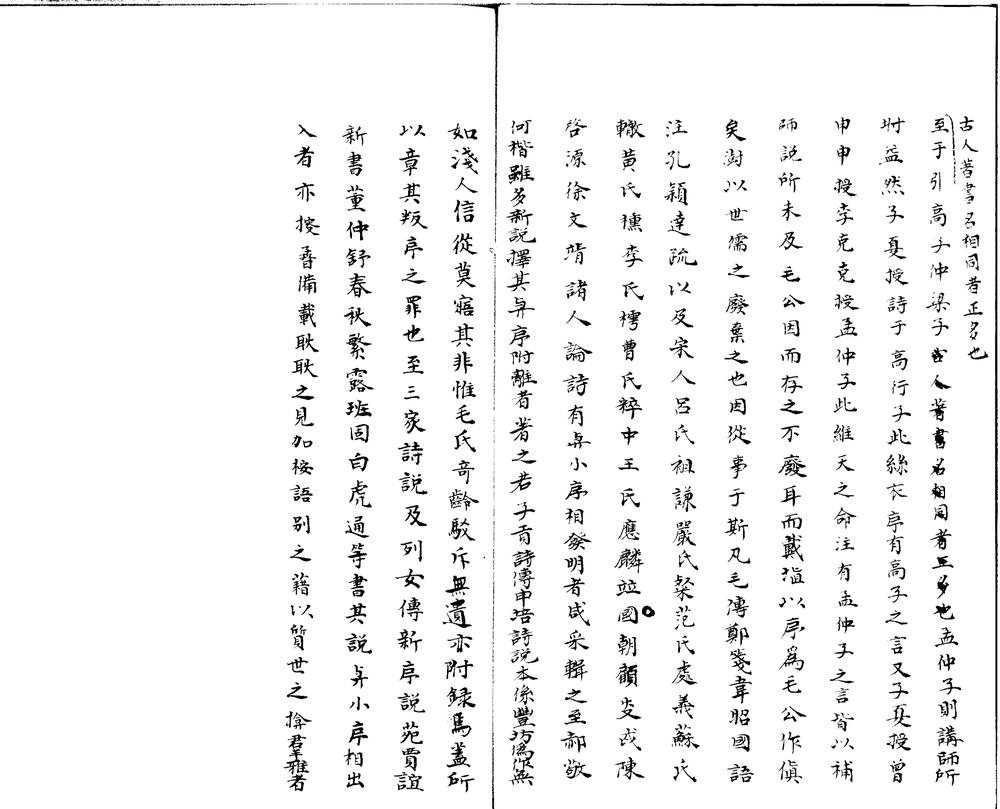 古人著書名相同者正多也
至于引高子仲梁子古人著書名相同者正多也孟仲子則講師所
附益然子夏授詩于高行子此絲衣序有高子之言又子夏授曾
申申授李克克授孟仲子此維天之命注有孟仲子之言皆以補
師説所未及毛公因而存之不廢耳而戴埴以序爲毛公作傎
矣澍以世儒之廢棄之也因從事于斯凡毛傳鄭箋韋昭國語
注孔穎達疏以及宋人呂氏祖謙嚴氏粲范氏處義蘇氏
轍黄氏櫄李氏樗曹氏粹中王氏應麟竝國朝顧炎武陳
啓源徐文靖諸人論詩有與小序相發明者咸采輯之至郝敬
何楷雖多新説擇其與序附離者著之若子貢詩傳申培詩説本係豐坊僞作無
如淺人信從莫寤其非惟毛氏奇齡駁斥無遺亦附録焉蓋所
以章其叛序之罪也至三家詩説及列女傳新序説苑賈誼
新書董仲舒春秋繁露班固白虎通等書其説與小序相出
入者亦搜香備載耿耿之見加桉語别之藉以質世之揜羣雅者